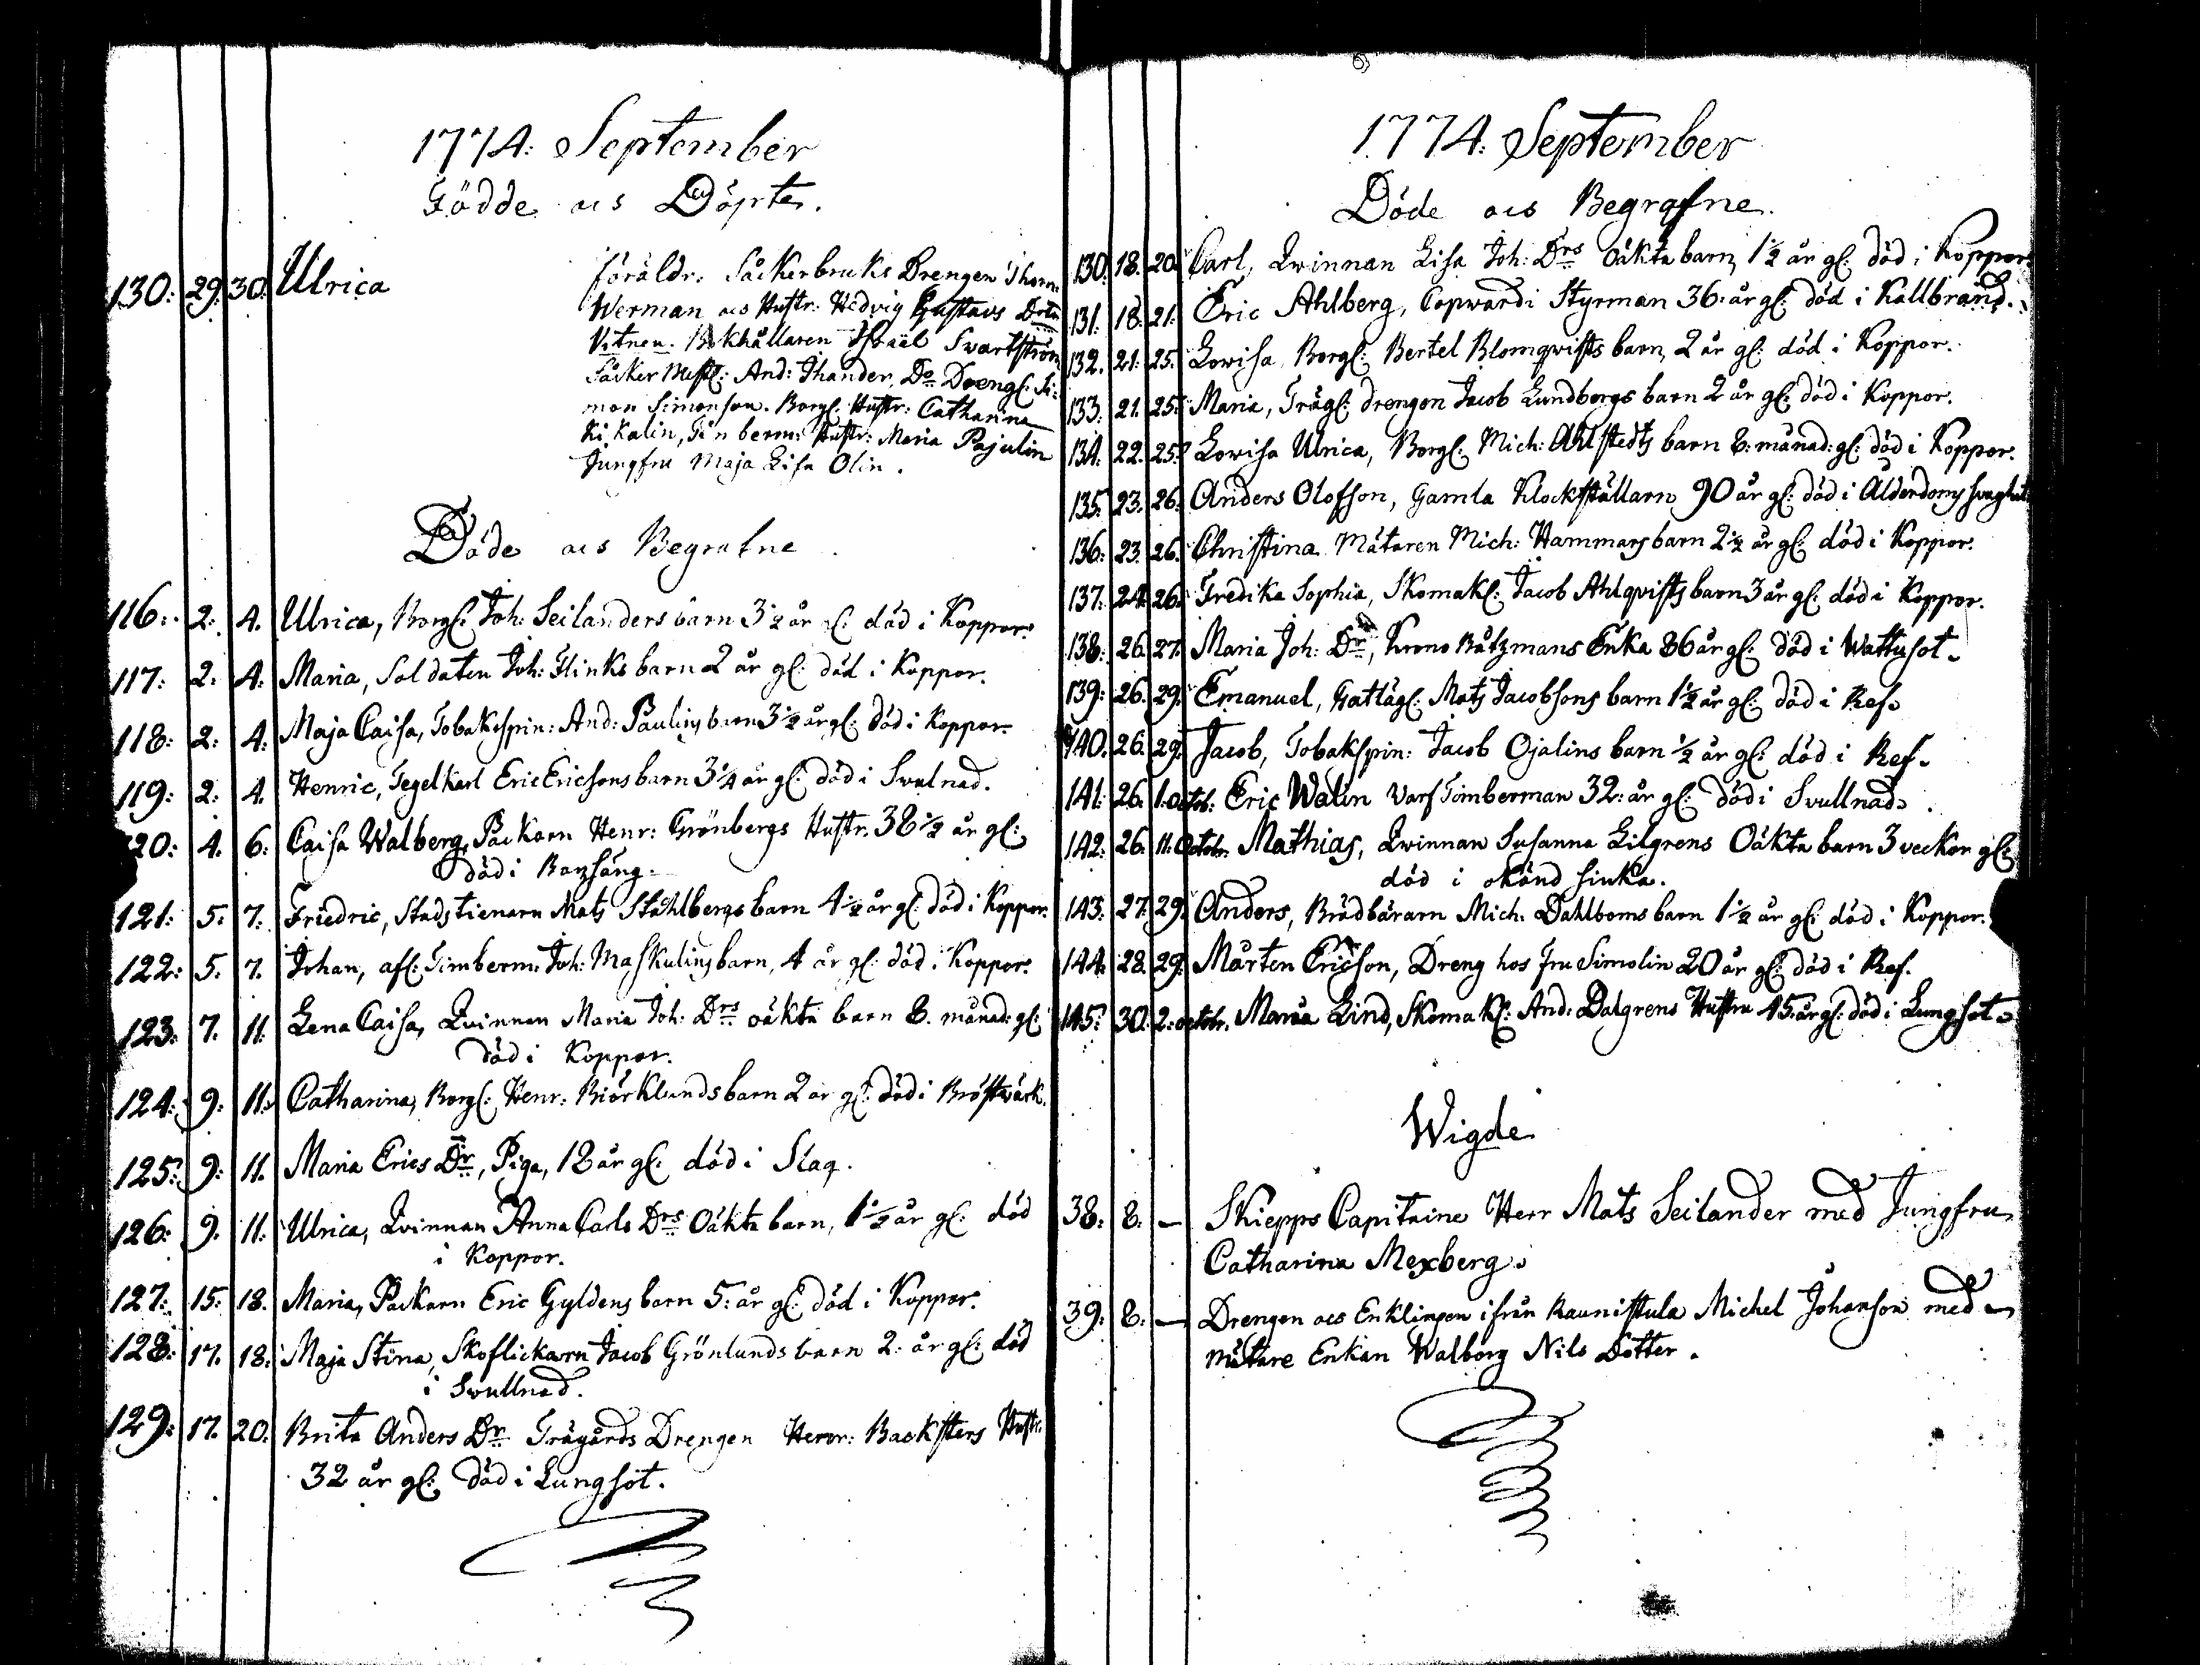 1774: September
Födde ocs Döpte.
130: 29. 30. Ulrica föräldr: Såckerbruks Drengen Thom:
Werman ocs Hustr: Hedvig Gustavs Dotr
Vitnen. Bokhållaren Israël Svartström
Såcker Mest: And: Thander, Do Drengl: Si-
mon Simonson. Borgl: Hustr: Catharina
Kikalin, Timberm: Hustr: Maria Pajulin
Jungfru Maja Lisa Olin.
Döde ocs Begrafne
116: 2: 4. Ulrica, Borgl: Joh: Seilanders barn 3 1/2 år gl: död i Koppor.
117: 2: 4: Maria, Soldaten Joh: Flinks barn 2 år gl: död i Koppor.
118: 2: 4: Maja Caisa, Tobakspin: And: Paulins barn 3 1/2 år gl: död i Koppor.
119: 2: 4. Henric, Tegelkarl Eric Ericsons barn 3 1/4 år gl: död i Svulnad.
120: 4. 6: Caisa Walberg, Packarn Henr: Grönbergs Hustr. 38 1/2 år gl:
död i Barnsäng.
121: 5: 7: Friedric, Stadstienarn Mats Ståhlbergs barn 4 1/2 år gl: död i Koppor.
122: 5. 7. Johan, afl: Timberm: Joh: Maskulins barn, 4 år gl: död i Koppor.
123: 7. 11: Lena Caisa, Qvinnan Maria Joh: Drs oäkta barn 8. månad: gl:
död i Koppor.
124: 9: 11: Catharina, Borgl: Henr: Biörklunds barn 2 år gl: död i Bröstwärk.
125: 9: 11. Maria Erics Dr, Piga, 18 år gl: död i Slag.
126: 9. 11: Ulrica, Qvinnan Anna Carls Drs Oäkta barn, 1 1/2 år gl: död
i Koppor.
127: 15: 18. Maria, Packarn Eric Gyldens barn 5: år gl: död i Koppor.
128: 17. 18: Maja Stina, Skoflickarn Jacob Grönlunds barn 2: år gl: död
i Svullnad.
129: 17. 20: Brita Anders Dr Trägårds Drengen Henr: Backsters Hustr.
32 år gl: död i Lungsot.
1774: September
Döde ocs Begrafne.
130. 18. 20. Carl, Qvinnan Lisa Joh: Drs Oäkta barn, 1 1/2 år gl: död i Koppor.
131: 18. 21: Eric Ahlberg, Copvardi Styrman 36: år gl: död i Kallbrand.
132. 21: 25: Lovisa, Borgl: Bertel Blomqvists barn, 2 år gl: död i Koppor.
133: 21. 25: Maria, Trägl: drengen Jacob Lundbergs barn 2 år gl: död i Koppor.
134: 22. 25: Lovisa Ulrica, Borgl: Mich: Ahlstedts barn 8: månad: gl: död i Koppor.
135: 23. 26. Anders Olofson, Gamla Klockställarn 90 år gl: död i Ålderdoms svaghet
136: 23. 26: Christina Mätaren Mich: Hammars barn 2 1/2 år gl: död i Koppor.
137: 24. 26: Fredika Sophia, Skomakl: Jacob Ahlqvists barn 3 år gl: död i Koppor.
138: 26. 27. Maria Joh: Dr, Krono Båtzmans Enka 86 år gl: död i Wattusot.
139: 26. 29: Emanuel, Gatlägl: Mats Jacobsons barn 1 1/2 år gl: död i Ref.
140. 26. 29: Jacob, Tobakspin: Jacob Ojalins barn 1/2 år gl: död i Ref.
141: 26. 1. Octob: Eric Walin Varf Timberman 32: år gl: död i Svullnad.
142: 26. 11. Octob. Mathias, Qvinnan Susanna Lilgrens Oäkta barn 3 veckor gl:
död i okänd siuka.
143: 27. 29: Anders, Brädbärarn Mich: Dahlboms barn 1 1/2 år gl: död i Koppor.
144: 28. 29: Mårten Ericson, Dreng hos Fru Simolin 20 år gl: död i Ref.
145: 30: 2: octob. Maria Lind, Skomakl: And: Dalgrens Hustru 45: år gl: död i Lungsot.
Wigde
38: 8. — Skiepps Capitaine Herr Mats Seilander med Jungfru
Catharina Mexberg.
39: 8: — Drengen ocs Enklingen ifrån Raunistula Michel Johanson med
mätare Enkan Walborg Nils Dotter.